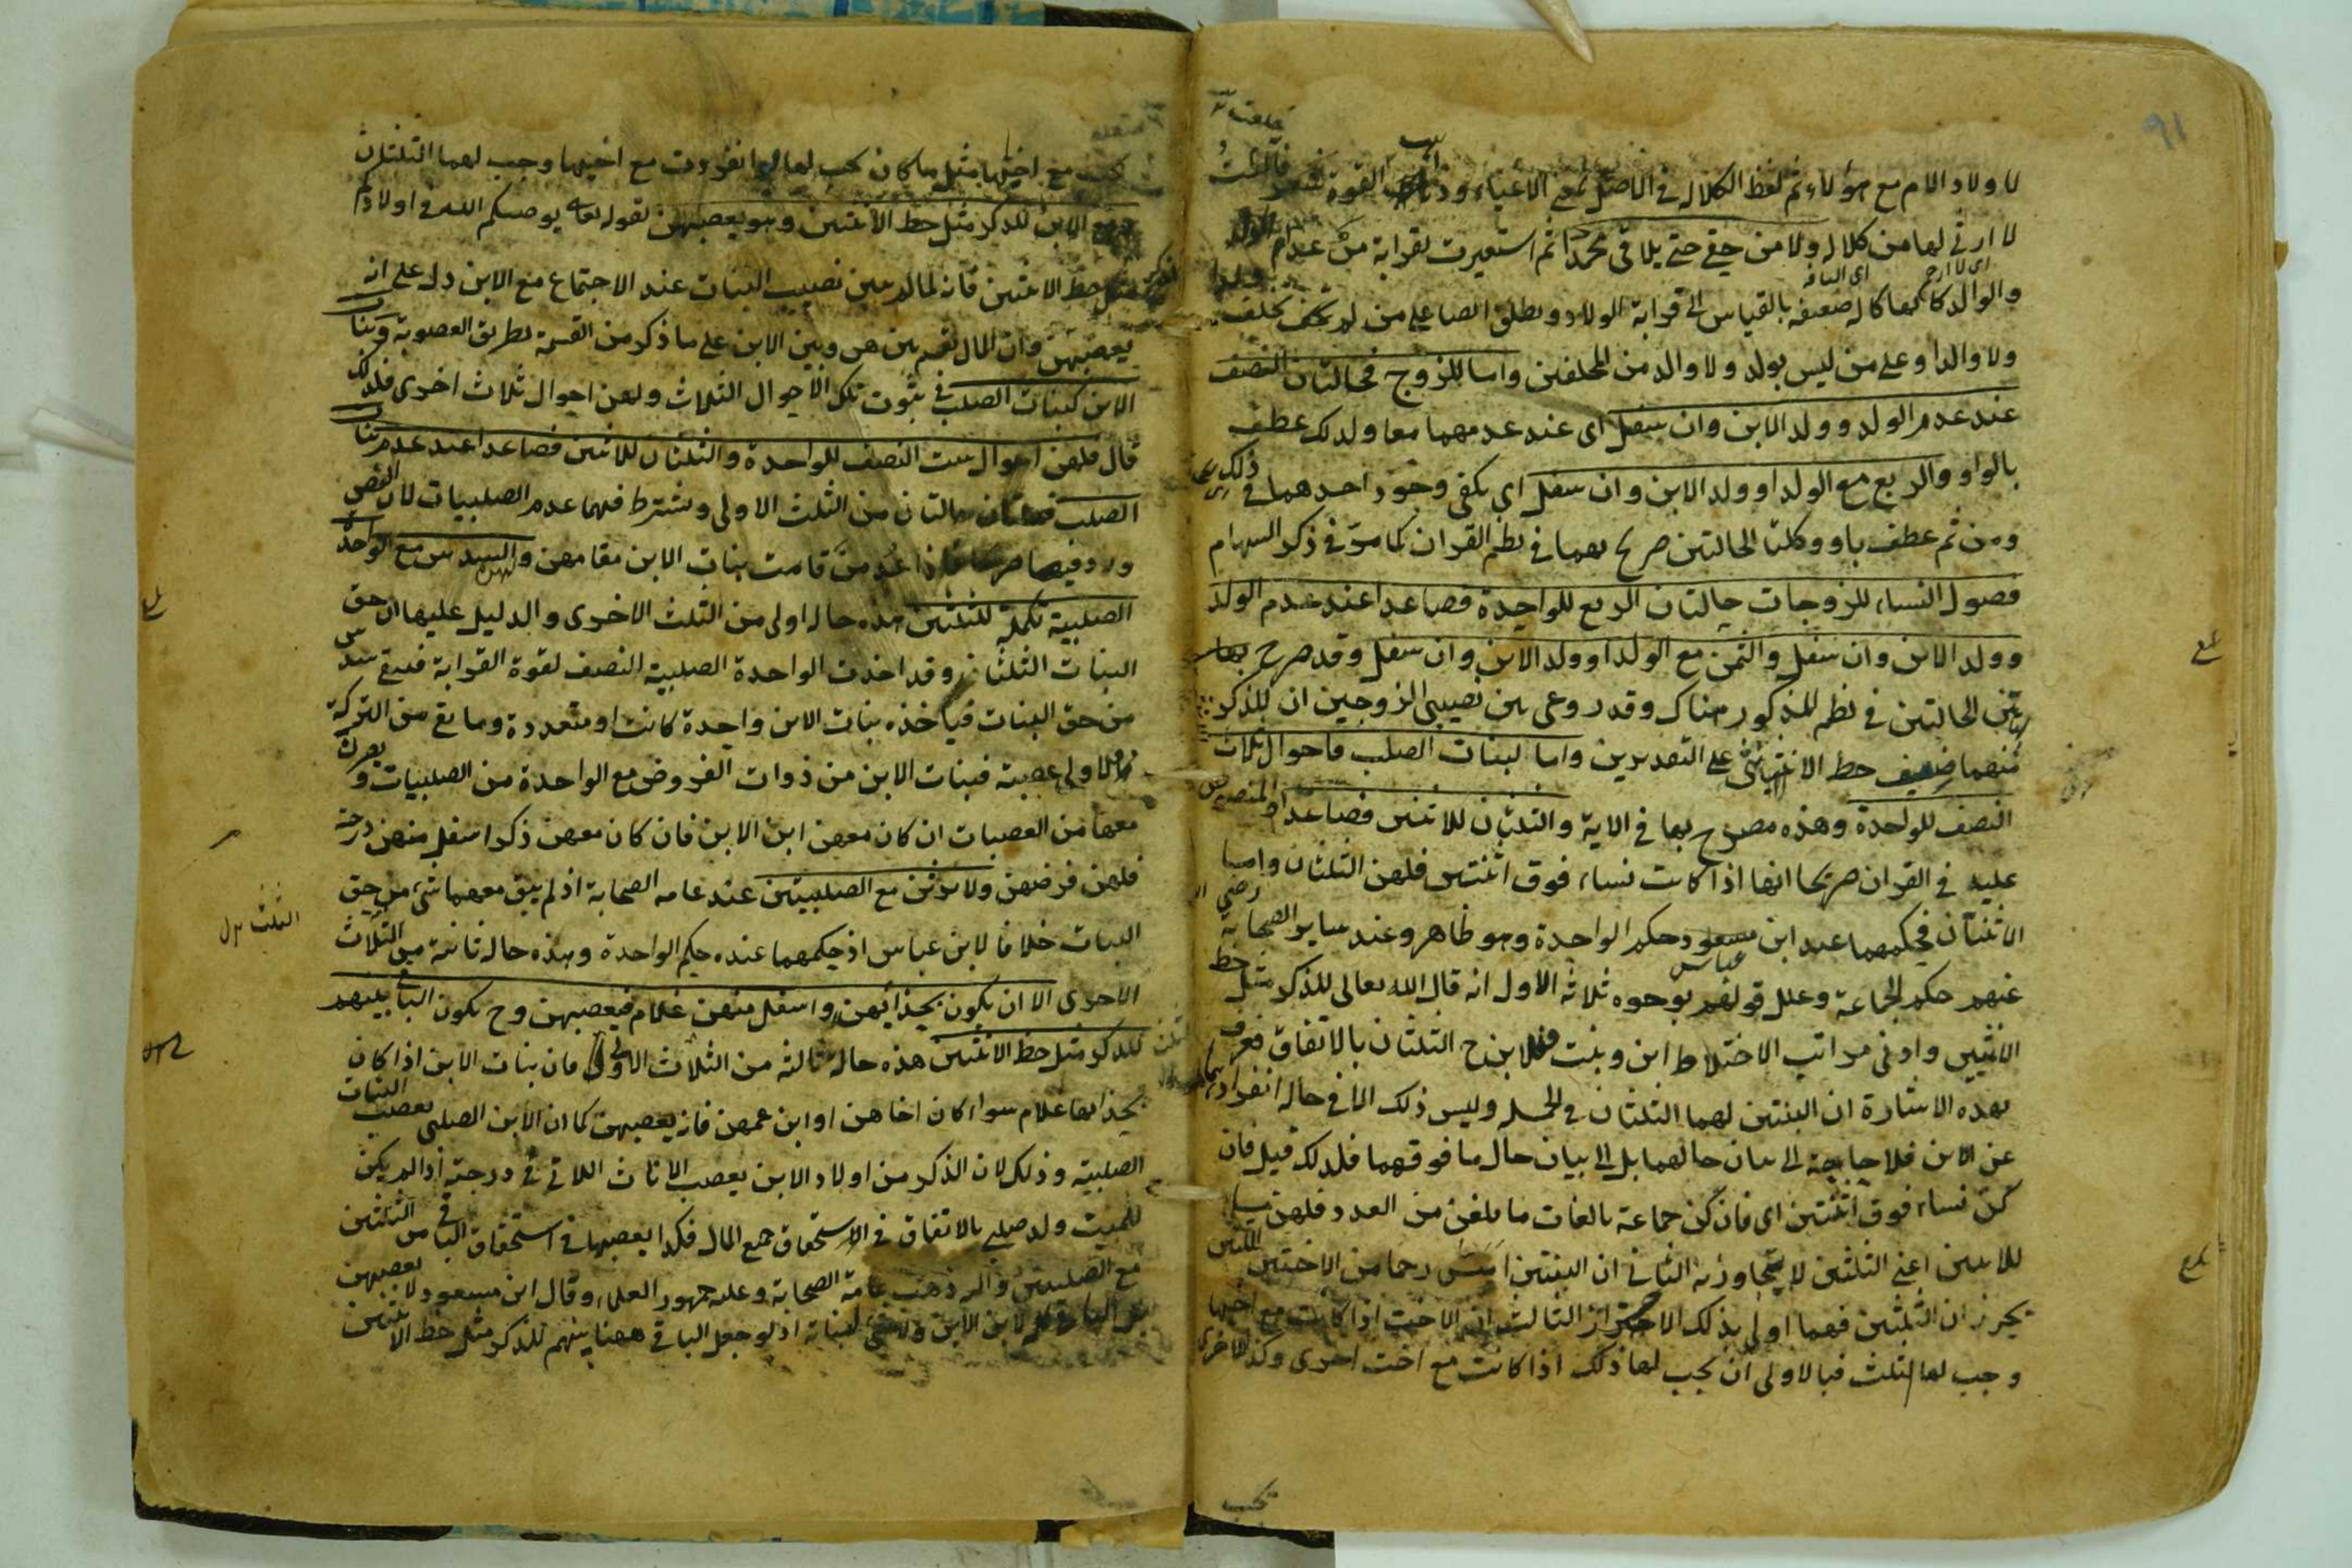 ٩١
لاولاد الام مع هؤلاء ثم لفظ الكلالة في الاصل بمعنى الاعياء وذهاب القوة
لا ارثى لها من كلالة ولا من حفى حتى يلاقى محمدا ثم استعيرت لقرابة من عدا الولد
والوالد كانها كالة ضعيفة بالقياس الى قرابة الولاد ويطلق ايضا على من لم يخلف
ولا والدا وعلى من ليس بولد ولا والد من المخلفين واما للزوج فحالتان النصف
عند عدم الولد وولد الابن وان سفل اى عند عدمهما معا ولذلك عطف
بالواو والربع مع الولد او ولد الابن وان سفل اى يكفى وجود احدهما في ذلك
ومن ثم عطف باو وكلتا الحالتين صرح بهما في نظم القران كما مر في ذكر السهام
فصول النساء للزوجات حالتان الربع للواحدة فصاعدا عند عدم الولد
وولد الابن وان سفل والثمن مع الولد او ولد الابن وان سفل وقد صرح بها
تين الحالتين في نظم المذكور هناك وقد روعى بين نصيبى الزوجين ان للذكر
منهما ضعف حظ الانثى على التقديرين واما لبنات الصلب فاحوال ثلاث
النصف للواحدة وهذه مصرح بها في الاية والثلثان للاثنتين فصاعدا
عليه في القران صريحا انها اذا كانت نساء فوق اثنتين فلهن الثلثان واما
الاثنتان فحكمهما عند ابن عباس حكم الواحدة وهو ظاهر وعند ساير الصحابة رضى
عنهم حكم الجماعة وعلل قولهم بوجوه ثلاثة الاول انه قال الله تعالى للذكر مثل حظ
الانثيين وادنى مراتب الاختلاط ابن وبنت فللابن ح الثلثان بالاتفاق فعرف
بهذه الاشارة ان البنتين لهما الثلثان في الجملة وليس ذلك الا في حالة انفرادهما
عن الابن فلا حاجة الى بيان حالهما بل الى بيان حال ما فوقهما فلذلك قيل فان
كن نساء فوق اثنتين اى فان كن جماعة بالغات ما بلغن من العدد فلهن
للاثنتين اعنى الثلثين لا يتجاوزنه الثانى ان البنتين امس رحما من الاختين اللتين
يحرزان الثلثين فهما اولى بذلك الاحتراز الثالث ان الاخت اذا كانت مع اخيها
وجب لها الثلث فبالاولى ان يجب لها ذلك اذا كانت مع اخت اخرى وكذا الاخرى
يجب
يجب مع اختها مثل ما كان يجب لها لو انفردت مع اخيها وجب لهما الثلثان
ومع الابن للذكر مثل حظ الانثيين وهو يعصبهن لقوله تعالى يوصيكم الله في اولادكم
للذكر مثل حظ الانثيين فانه لما لم يبين نصيب البنات عند الاجتماع مع الابن دل على انه
يعصبهن وان المال تقسم بينهن وبين الابن على ما ذكر من القسمة بطريق العصوبة وبنات
الابن كبنات الصلب في ثبوت تلك الاحوال الثلاث ولهن احوال ثلاث اخرى فلذلك
قال فلهن احوال ست النصف للواحدة والثلثان للاثنتين فصاعدا عند عدم بنات
الصلب فهاتان حالتان من الثلث الاولى ويشترط فيهما عدم الصلبيات لان النص
ورد فيها صريحا فاذا عدمن قامت بنات الابن مقامهن والسدس مع الواحدة
الصلبية تكملة للثلثين هذه حالة اولى من الثلث الاخرى والدليل عليها ان حق
البنات الثلثان وقد اخذت الواحدة الصلبية النصف لقوة القرابة فبقى سدس
من حق البنات فياخذه بنات الابن واحدة كانت او متعددة وما بقى من التركة
فلاولى عصبة فبنات الابن من ذوات الفروض مع الواحدة من الصلبيات و
معها من العصبات ان كان معهن ابن الابن فان كان معهن ذكر اسفل منهن درجة
فلهن فرضهن ولا يرثن مع الصلبيتين عند عامة الصحابة اذ لم يبق معهما شىء من حق
البنات خلافا لابن عباس اذ حكمهما عنده حكم الواحدة وهذه حالة ثانية من الثلاث
الاخرى الا ان يكون بحذائهن او اسفل منهن غلام فيعصبهن وح يكون الباقى بينهم
للذكر مثل حظ الانثيين هذه حالة ثالثة من الثلاث الاولى فان بنات الابن اذا كان
بحذائها غلام سواء كان اخاهن او ابن عمهن فانه يعصبهن كما ان الابن الصلبى يعصب البنات
الصلبية وذلك لان الذكر من اولاد الابن يعصب الاناث اللاتى في درجته اذا لم يكن
للميت ولد صلبى بالاتفاق في استحقاق جميع المال فكذا يعصبها في استحقاق الباقى من الثلثين
مع الصلبيتين واليه ذهب عامة الصحابة وعليه جمهور العلماء وقال ابن مسعود لا يعصبهن
بل الباقى كله لابن الابن ولا شىء لبناته اذ لو جعل الباقى ههنا بينهم للذكر مثل حظ الانثيين